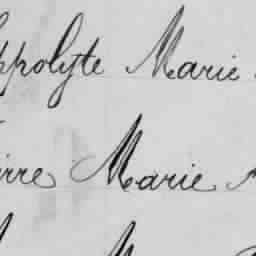 ppolyte Marie
irre Marie